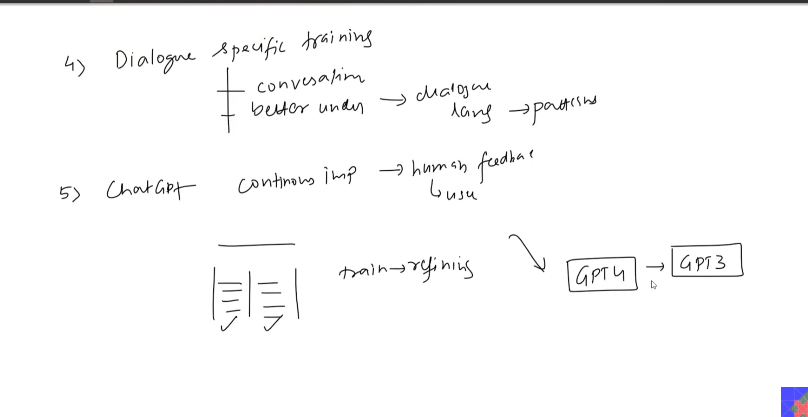 4) Dialogue specific training
conversation
better under → dialogue
lang → patterns
5) ChatGPT continous imp → human feedbac
↳ user
train → refining
GPT4 → GPT3